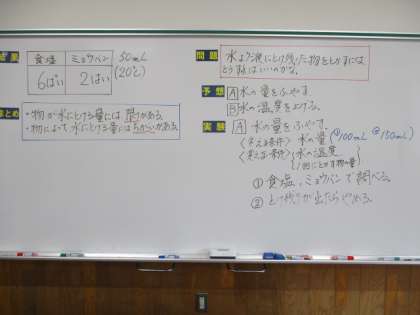 結果
食塩 ミョウバン 50mL
6ぱい 2はい (20℃)
まとめ
・物が水にとける量には、限りがある。
・物によって、水にとける量にはちがいがある。
問題
水よう液にとけ残った物をとかすには
どうすればいいのかな。
予想
A 水の量をふやす。
B 水の温度を上げる。
実験
A 水の量をふやす。
〈変える条件〉水の量 (①100mL ②150mL)
水の温度
1回にとかす物の量
① 食塩、ミョウバンで調べる。
② とけ残りが出たらやめる。